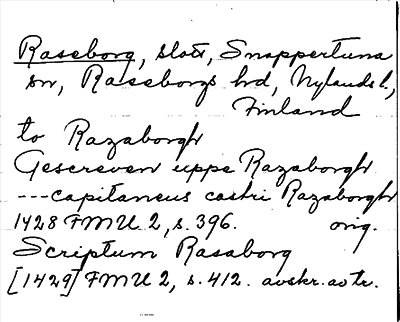 Raseborg, slott, Snappertuna
sn, Raseborgs hrd, Nylands l.,
Finland
to Razaborgh
Gescreven uppe Razaborgh
---capitaneus castri Razaborgh
1428 FMU 2, s. 396. orig.
Scriptum Rasaborg
[1429] FMU 2, s. 412. avskr. av tr.